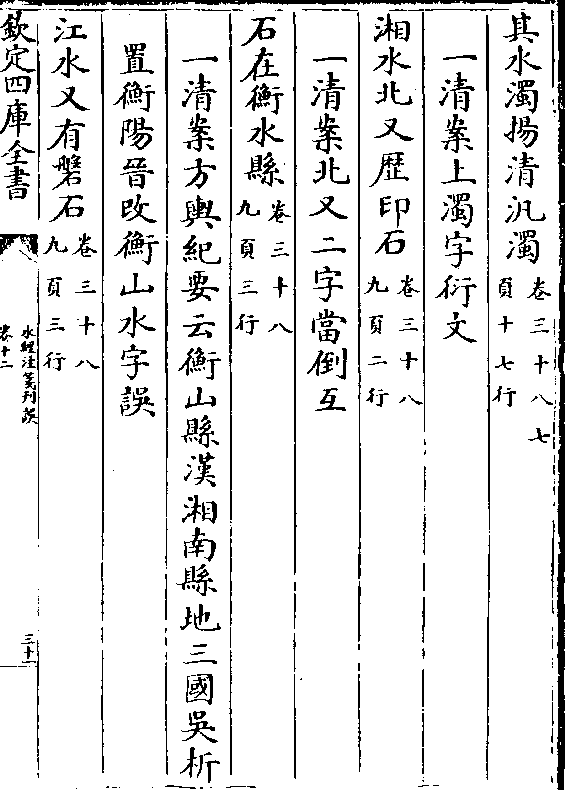 其水濁揚清汎濁卷三十八七頁十七行
一清案上濁字衍文
湘水北又歷印石卷三十八九頁二行
一清案北又二字當倒互
石在衡水縣卷三十八九頁三行
一清案方輿紀要云衡山縣漢湘南縣地三國吳析
置衡陽晉改衡山水字誤
江水又有磐石卷三十八九頁三行
欽定四庫全書
水經注箋刊誤
卷十二
三十一